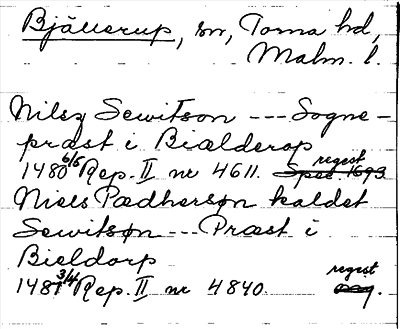 Bjällerup, sn, Torna hd,
Malm. l.
Nilsz Sewitson --- Sogne-
præst i Biælderop
1480 6/5 Rep. II nr 4611. regest
Niels Pædhersøn kaldet
Sewitsøn --- Præst i
Bieldorp
1481 3/4 Rep. II nr 4840. regest